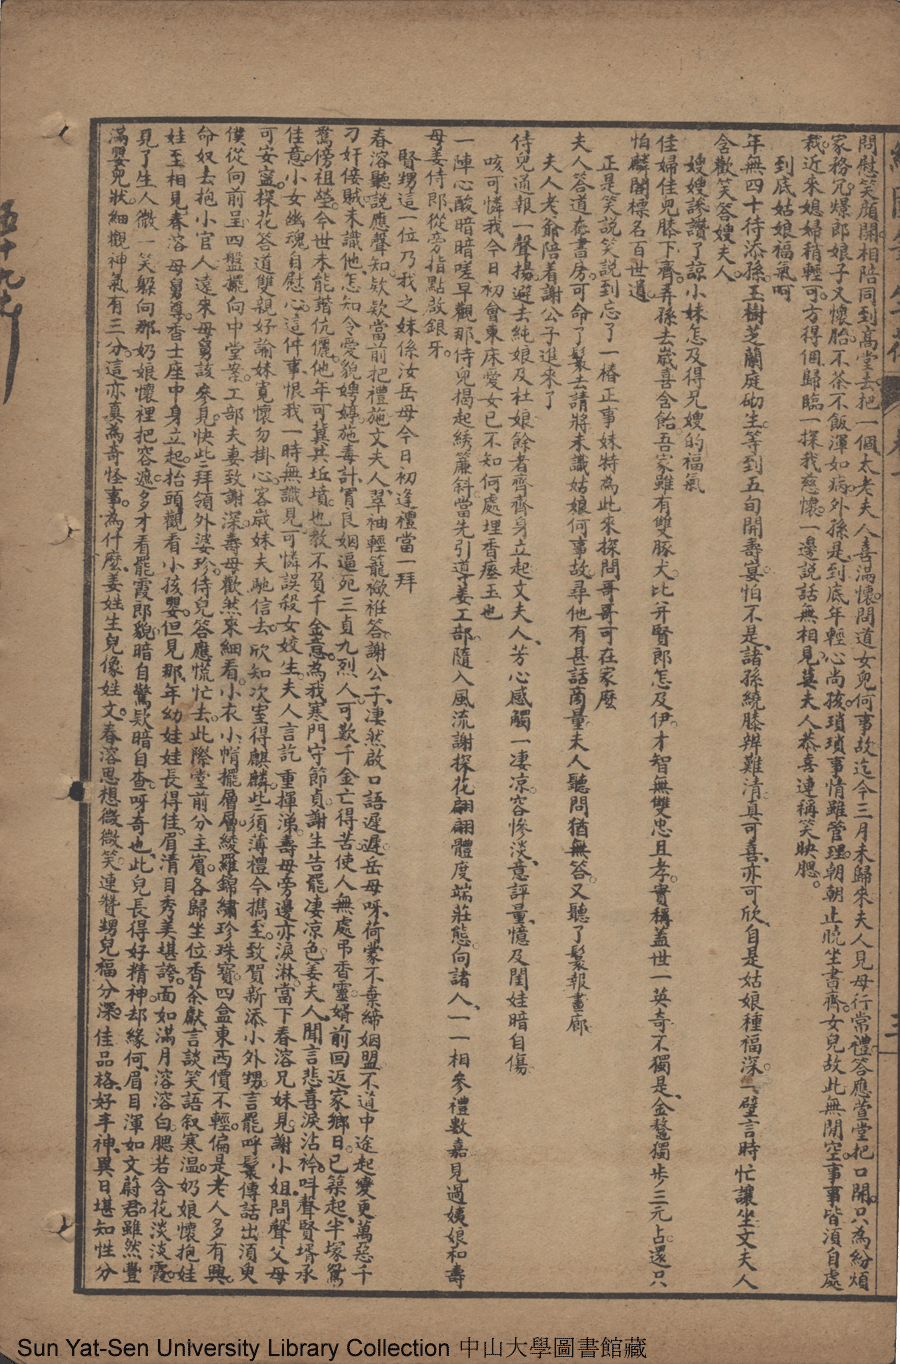 問慰笑顏開相陪同到高堂去把一個太老夫人喜滿懷問道女兒何事故迄今三月未歸來夫人見母行常禮答應萱堂把口開只為紛煩
家務冗爆郎娘子又懷胎不茶不飯渾如病外孫是到底年輕心尚孩瑣瑣事情雖管理朝朝止曉坐書齊女兒故此無閒空事事皆須自處
裁近來媳婦稍輕可方得個歸臨一探我慈懷一邊說話無相見姜夫人恭喜連稱笑映腮
到底姑娘福氣呵
年無四十待添孫玉樹芝蘭庭砌生等到五旬開壽宴怕不是諸孫繞膝辨難清真可喜亦可欣自是姑娘種福深一壁言時忙讓坐文夫人
含歡笑答嫂夫人
嫂嫂謬讚了諒小妹怎及得兄嫂的福氣
佳婦佳兒膝下齊弄孫去歲喜含飴吾家雖有雙豚犬比并賢郎怎及伊才智無雙忠且孝實稱蓋世一英奇不獨是金鰲獨步三元占還只
怕麟閣標名百世遺
正是笑說笑說到忘了一樁正事妹特為此來探問哥哥可在家麼
夫人答道在書房可命了鬟去請將未識姑娘何事故尋他有甚話商量夫人聽問猶無答又聽了鬟報畫廊
夫人老爺陪着謝公子進來了
侍兒通報一聲揚避去純娘及杜娘餘者齊齊身立起文夫人芳心感觸一凄凉容慘淡意評量憶及閨娃暗自傷
咳可憐我今日初會東床愛女已不知何處埋香瘞玉也
一陣心酸暗暗嗟早觀那侍兒揭起綉簾斜當先引導姜工部隨入風流謝探花翩翩體度端莊態向諸人一一相參禮數嘉見過姨娘和壽
母姜侍郎從旁指點啟銀牙
賢甥這一位乃我之妹係汝岳母今日初逢禮當一拜
春溶聽說應聲知欵欵當前把禮施文夫人翠袖輕籠歛袵答謝公子凄然啟口語遲遲岳母呀荷蒙不棄締姻盟不道中途起變更萬惡千
刁奸佞賊未識他怎知令愛貌娉婷施毒計冒良姻逼死三貞九烈人可歎千金亡得苦使人無處弔香靈婿前回返家鄉日已築起半塚鴛
鴦傍祖塋今世未能諧伉儷他年可冀共坵墳也敎不負千金意為我寒門守節貞謝生告罷凄凉色姜夫人聞言悲喜淚沾衿呌聲賢壻承
佳意小女幽魂自慰心這件事恨我一時無識見可憐誤殺女姣生夫人言訖重揮涕壽母旁邊亦淚淋當下春溶兄妹見謝小姐問聲父母
可安寍探花答道雙親好諭妹寬懷勿掛心客歲妹夫馳信去欣知次室得麒麟些須薄禮今攜至致賀新添小外甥言罷呼鬟傳話出須臾
僕從向前呈四盤擺向中堂案工部夫妻致謝深壽母歡然來細看小衣小帽擺層層綾羅錦繡珍珠寶四盒東西價不輕偏是老人多有興
命奴去抱小官人遠來母舅該參見快些拜領外婆珍侍兒答應慌忙去此際堂前分主賓各歸坐位香茶獻言談笑語叙寒温奶娘懷抱娃
娃至相見春溶母舅尊香士座中身立起抬頭觀看小孩嬰但見那年幼娃娃長得佳眉清目秀美堪誇面如滿月溶溶白腮若含花淡淡霞
見了生人微一笑躲向那奶娘懷裡把容遮多才看罷霞郎貌暗自驚欵暗自查呀奇也此兒長得好精神却緣何眉目渾如文蔚君雖然豐
滿嬰兒狀細觀神氣有三分這亦真為奇怪事為什麼姜姓生兒像姓文春溶思想微微笑連贊甥兒福分深佳品格好丰神異日堪知性分
三
五十九
Sun Yat-Sen University Library Collection 中山大學圖書館藏